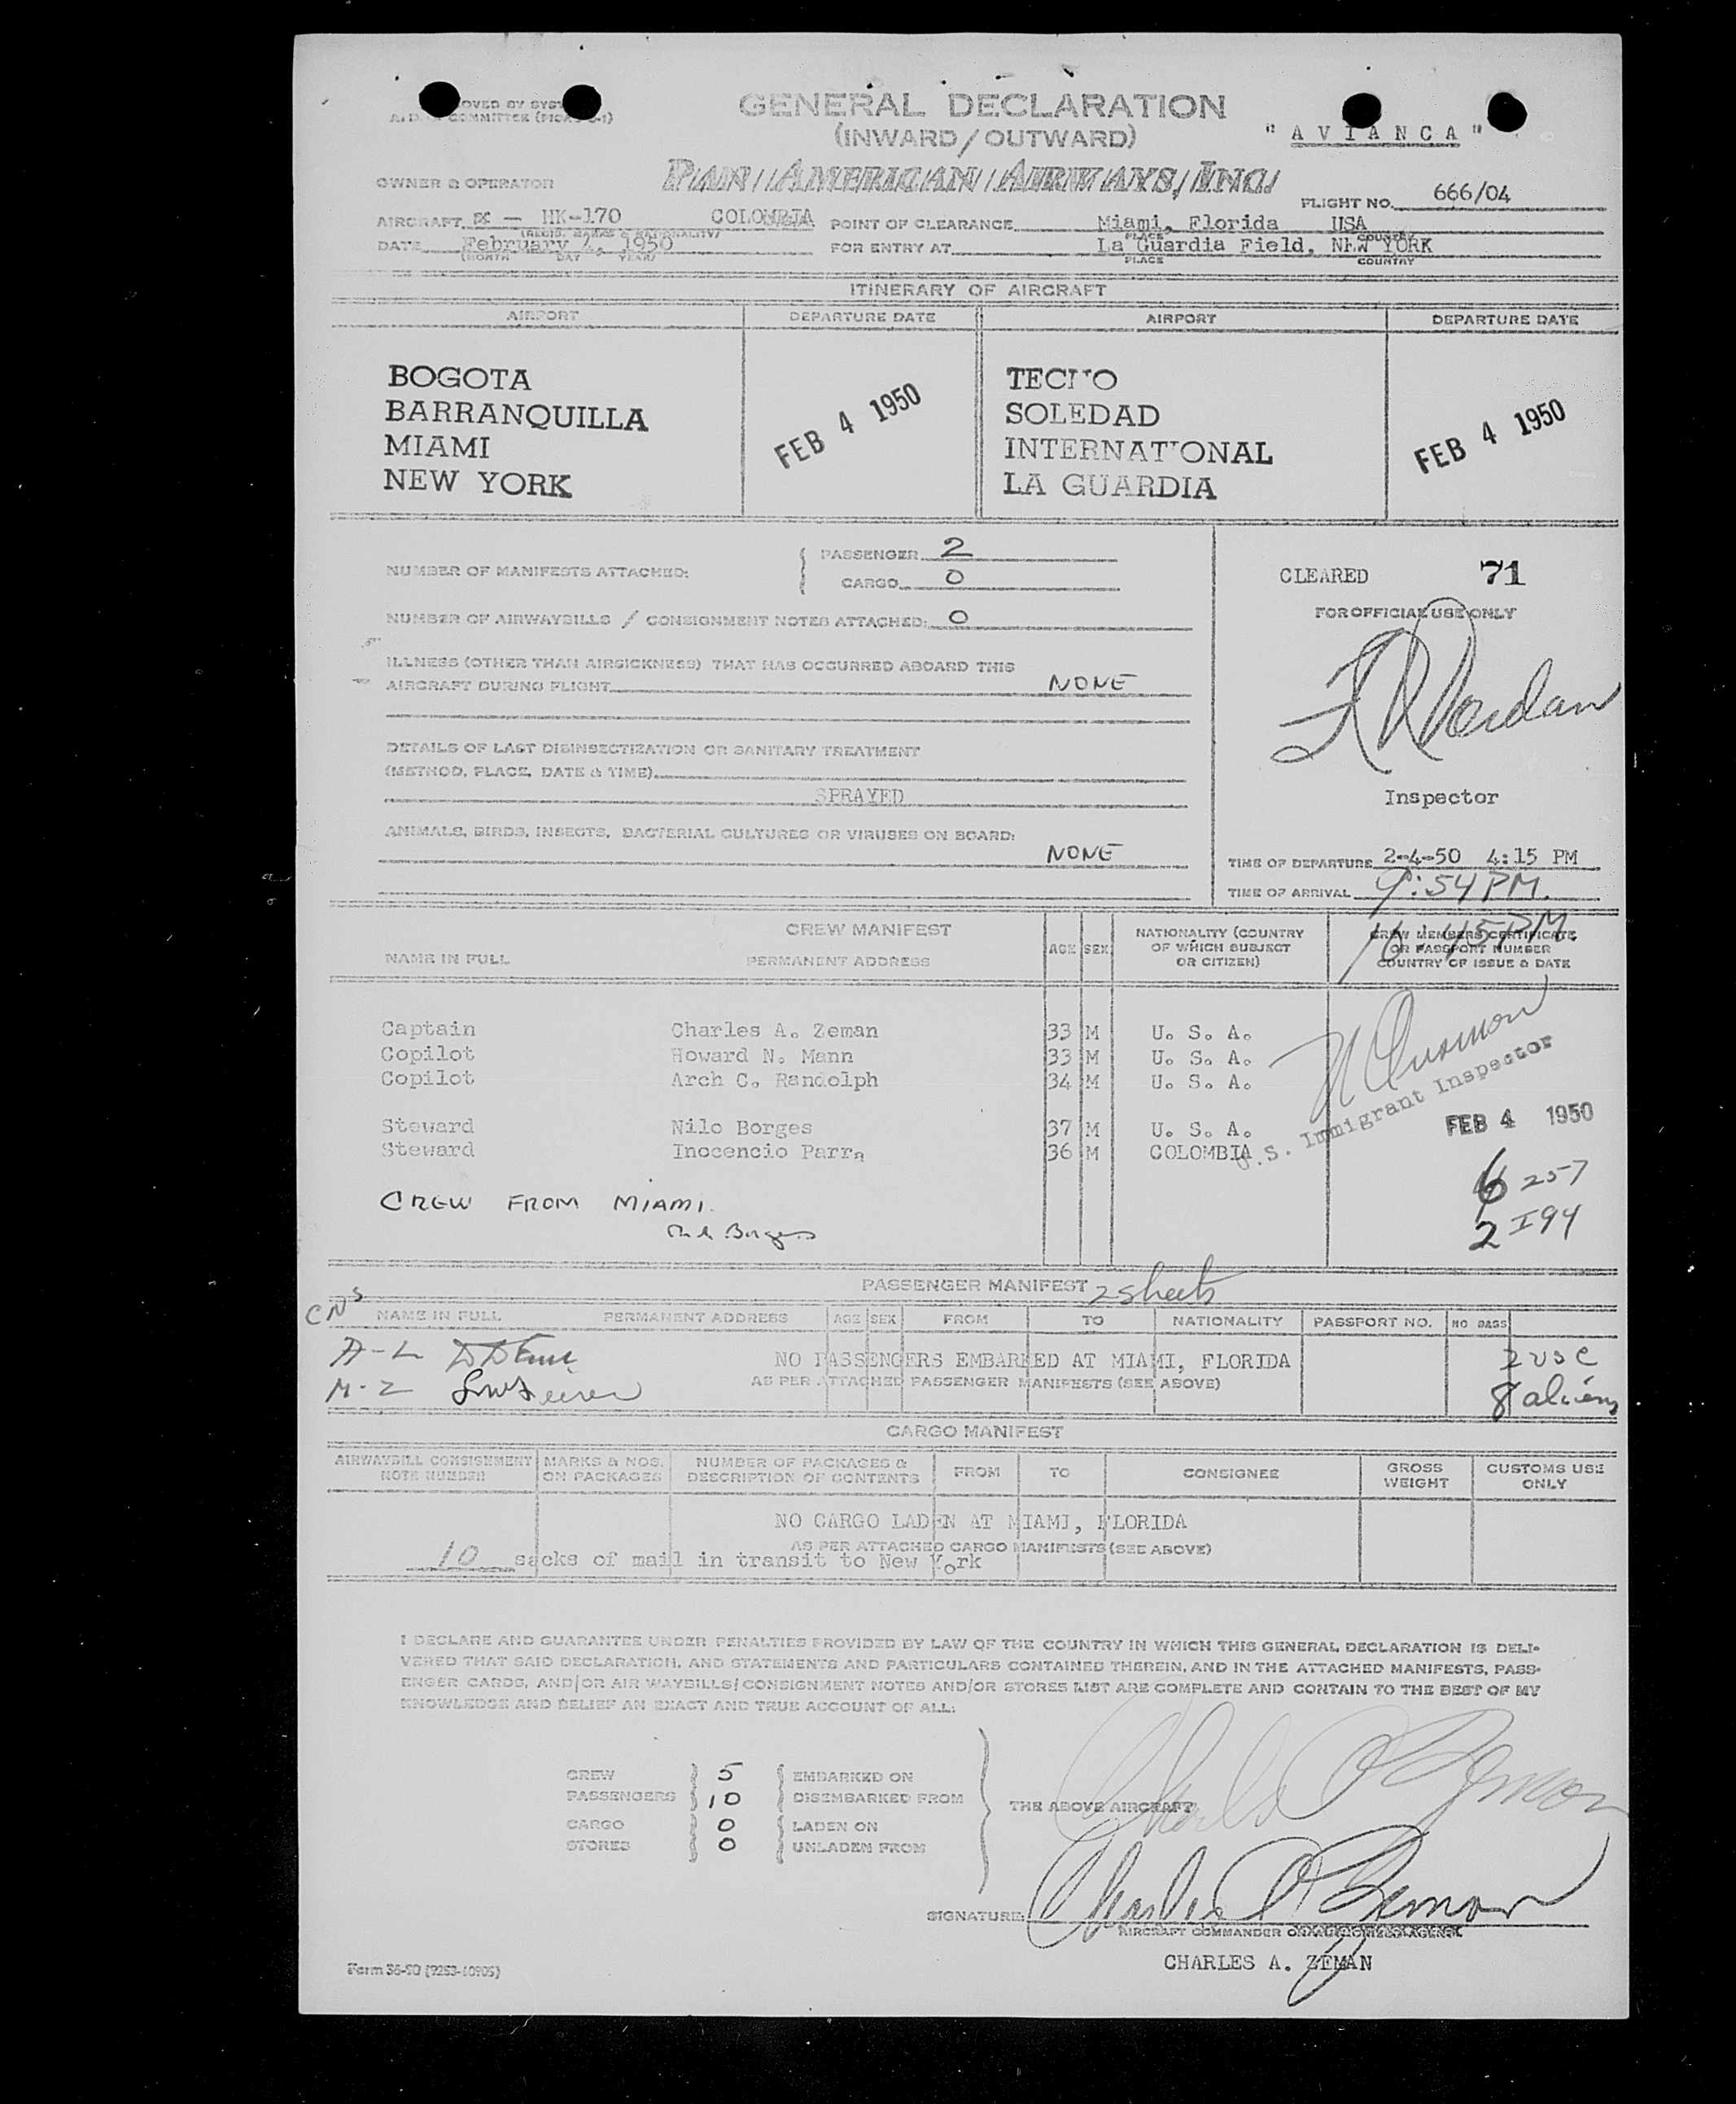 GENERAL DECLARATION
(INWARD/OUTWARD)
" A V I A N C A "
PAN AMERICAN AIRWAYS, INC.
OWNER & OPERATOR
FLIGHT NO. 666/04
AIRCRAFT HK-170 COLOMBIA POINT OF CLEARANCE Miami, Florida USA
(REGIS. MARKS & NATIONALITY) PLACE COUNTRY
DATE February 4, 1950 FOR ENTRY AT La Guardia Field, NEW YORK
(MONTH DAY YEAR) PLACE COUNTRY
ITINERARY OF AIRCRAFT
AIRPORT DEPARTURE DATE AIRPORT DEPARTURE DATE
BOGOTA TECHO
BARRANQUILLA FEB 4 1950 SOLEDAD FEB 4 1950
MIAMI INTERNATIONAL
NEW YORK LA GUARDIA
NUMBER OF MANIFESTS ATTACHED: PASSENGER 2
CARGO 0
CLEARED 71
NUMBER OF AIRWAYBILLS / CONSIGNMENT NOTES ATTACHED: 0
FOR OFFICIAL USE ONLY
ILLNESS (OTHER THAN AIRSICKNESS) THAT HAS OCCURRED ABOARD THIS
AIRCRAFT DURING FLIGHT NONE
DETAILS OF LAST DISINSECTIZATION OR SANITARY TREATMENT
(METHOD, PLACE, DATE & TIME)
SPRAYED
Inspector
ANIMALS, BIRDS, INSECTS, BACTERIAL CULTURES OR VIRUSES ON BOARD:
NONE
TIME OF DEPARTURE 2-4-50 4:15 PM
TIME OF ARRIVAL 9:54 PM.
CREW MANIFEST
NAME IN FULL PERMANENT ADDRESS AGE SEX NATIONALITY (COUNTRY OF WHICH SUBJECT OR CITIZEN) CREW MEMBERS CERTIFICATE OR PASSPORT NUMBER COUNTRY OF ISSUE & DATE
Captain Charles A. Zeman 33 M U. S. A.
Copilot Howard N. Mann 33 M U. S. A.
Copilot Arch C. Randolph 34 M U. S. A.
Steward Nilo Borges 37 M U. S. A.
Steward Inocencio Parra 36 M COLOMBIA
U.S. Immigrant Inspector
FEB 4 1950
6 257
2 I94
CREW FROM MIAMI.
PASSENGER MANIFEST 2 sheets
NAME IN FULL PERMANENT ADDRESS AGE SEX FROM TO NATIONALITY PASSPORT NO. NO BAGS
A-L
NO PASSENGERS EMBARKED AT MIAMI, FLORIDA 2 USC
M-Z
AS PER ATTACHED PASSENGER MANIFESTS (SEE ABOVE) 8 aliens
CARGO MANIFEST
AIRWAYBILL CONSIGNMENT NOTE NUMBER MARKS & NOS. ON PACKAGES NUMBER OF PACKAGES & DESCRIPTION OF CONTENTS FROM TO CONSIGNEE GROSS WEIGHT CUSTOMS USE ONLY
NO CARGO LADEN AT MIAMI, FLORIDA
AS PER ATTACHED CARGO MANIFESTS (SEE ABOVE)
10 sacks of mail in transit to New York
I DECLARE AND GUARANTEE UNDER PENALTIES PROVIDED BY LAW OF THE COUNTRY IN WHICH THIS GENERAL DECLARATION IS DELI-
VERED THAT SAID DECLARATION, AND STATEMENTS AND PARTICULARS CONTAINED THEREIN, AND IN THE ATTACHED MANIFESTS, PASS-
ENGER CARDS, AND/OR AIR WAYBILLS/CONSIGNMENT NOTES AND/OR STORES LIST ARE COMPLETE AND CONTAIN TO THE BEST OF MY
KNOWLEDGE AND BELIEF AN EXACT AND TRUE ACCOUNT OF ALL:
CREW 5 EMBARKED ON
PASSENGERS 10 DISEMBARKED FROM
THE ABOVE AIRCRAFT
CARGO 0 LADEN ON
STORES 0 UNLADEN FROM
SIGNATURE: Charles A Zeman
AIRCRAFT COMMANDER OR AUTHORIZED AGENT
CHARLES A. ZEMAN